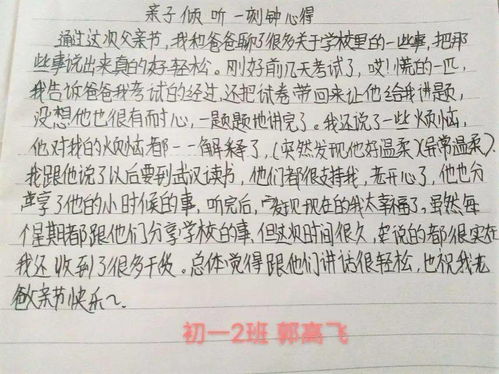 亲子倾听一刻钟心得
通过这次父亲节,我和爸爸聊了很多关于学校里的一些事,把那
些事说出来真的好轻松。刚好前几天考试了,哎!慌的一匹,
我告诉爸爸我考试的经过,还把试卷带回来让他给我讲题,
没想他也很有耐心,一题题地讲完了。我还说了一些烦恼,
他对我的烦恼都一一解释了,(突然发现他好温柔)(异常温柔)。
我跟他说了以后要到武汉读书,他们都很支持我,老开心了,他也分
享了他的小时候的事,听完后,发现现在的我太幸福了,虽然每
个星期都跟他们分享学校的事,但这次时间很久,说的都很实在
我还收到了很多干货。总体觉得跟他们讲话很轻松,也祝我老
爸父亲节快乐~
初一2班 郭高飞